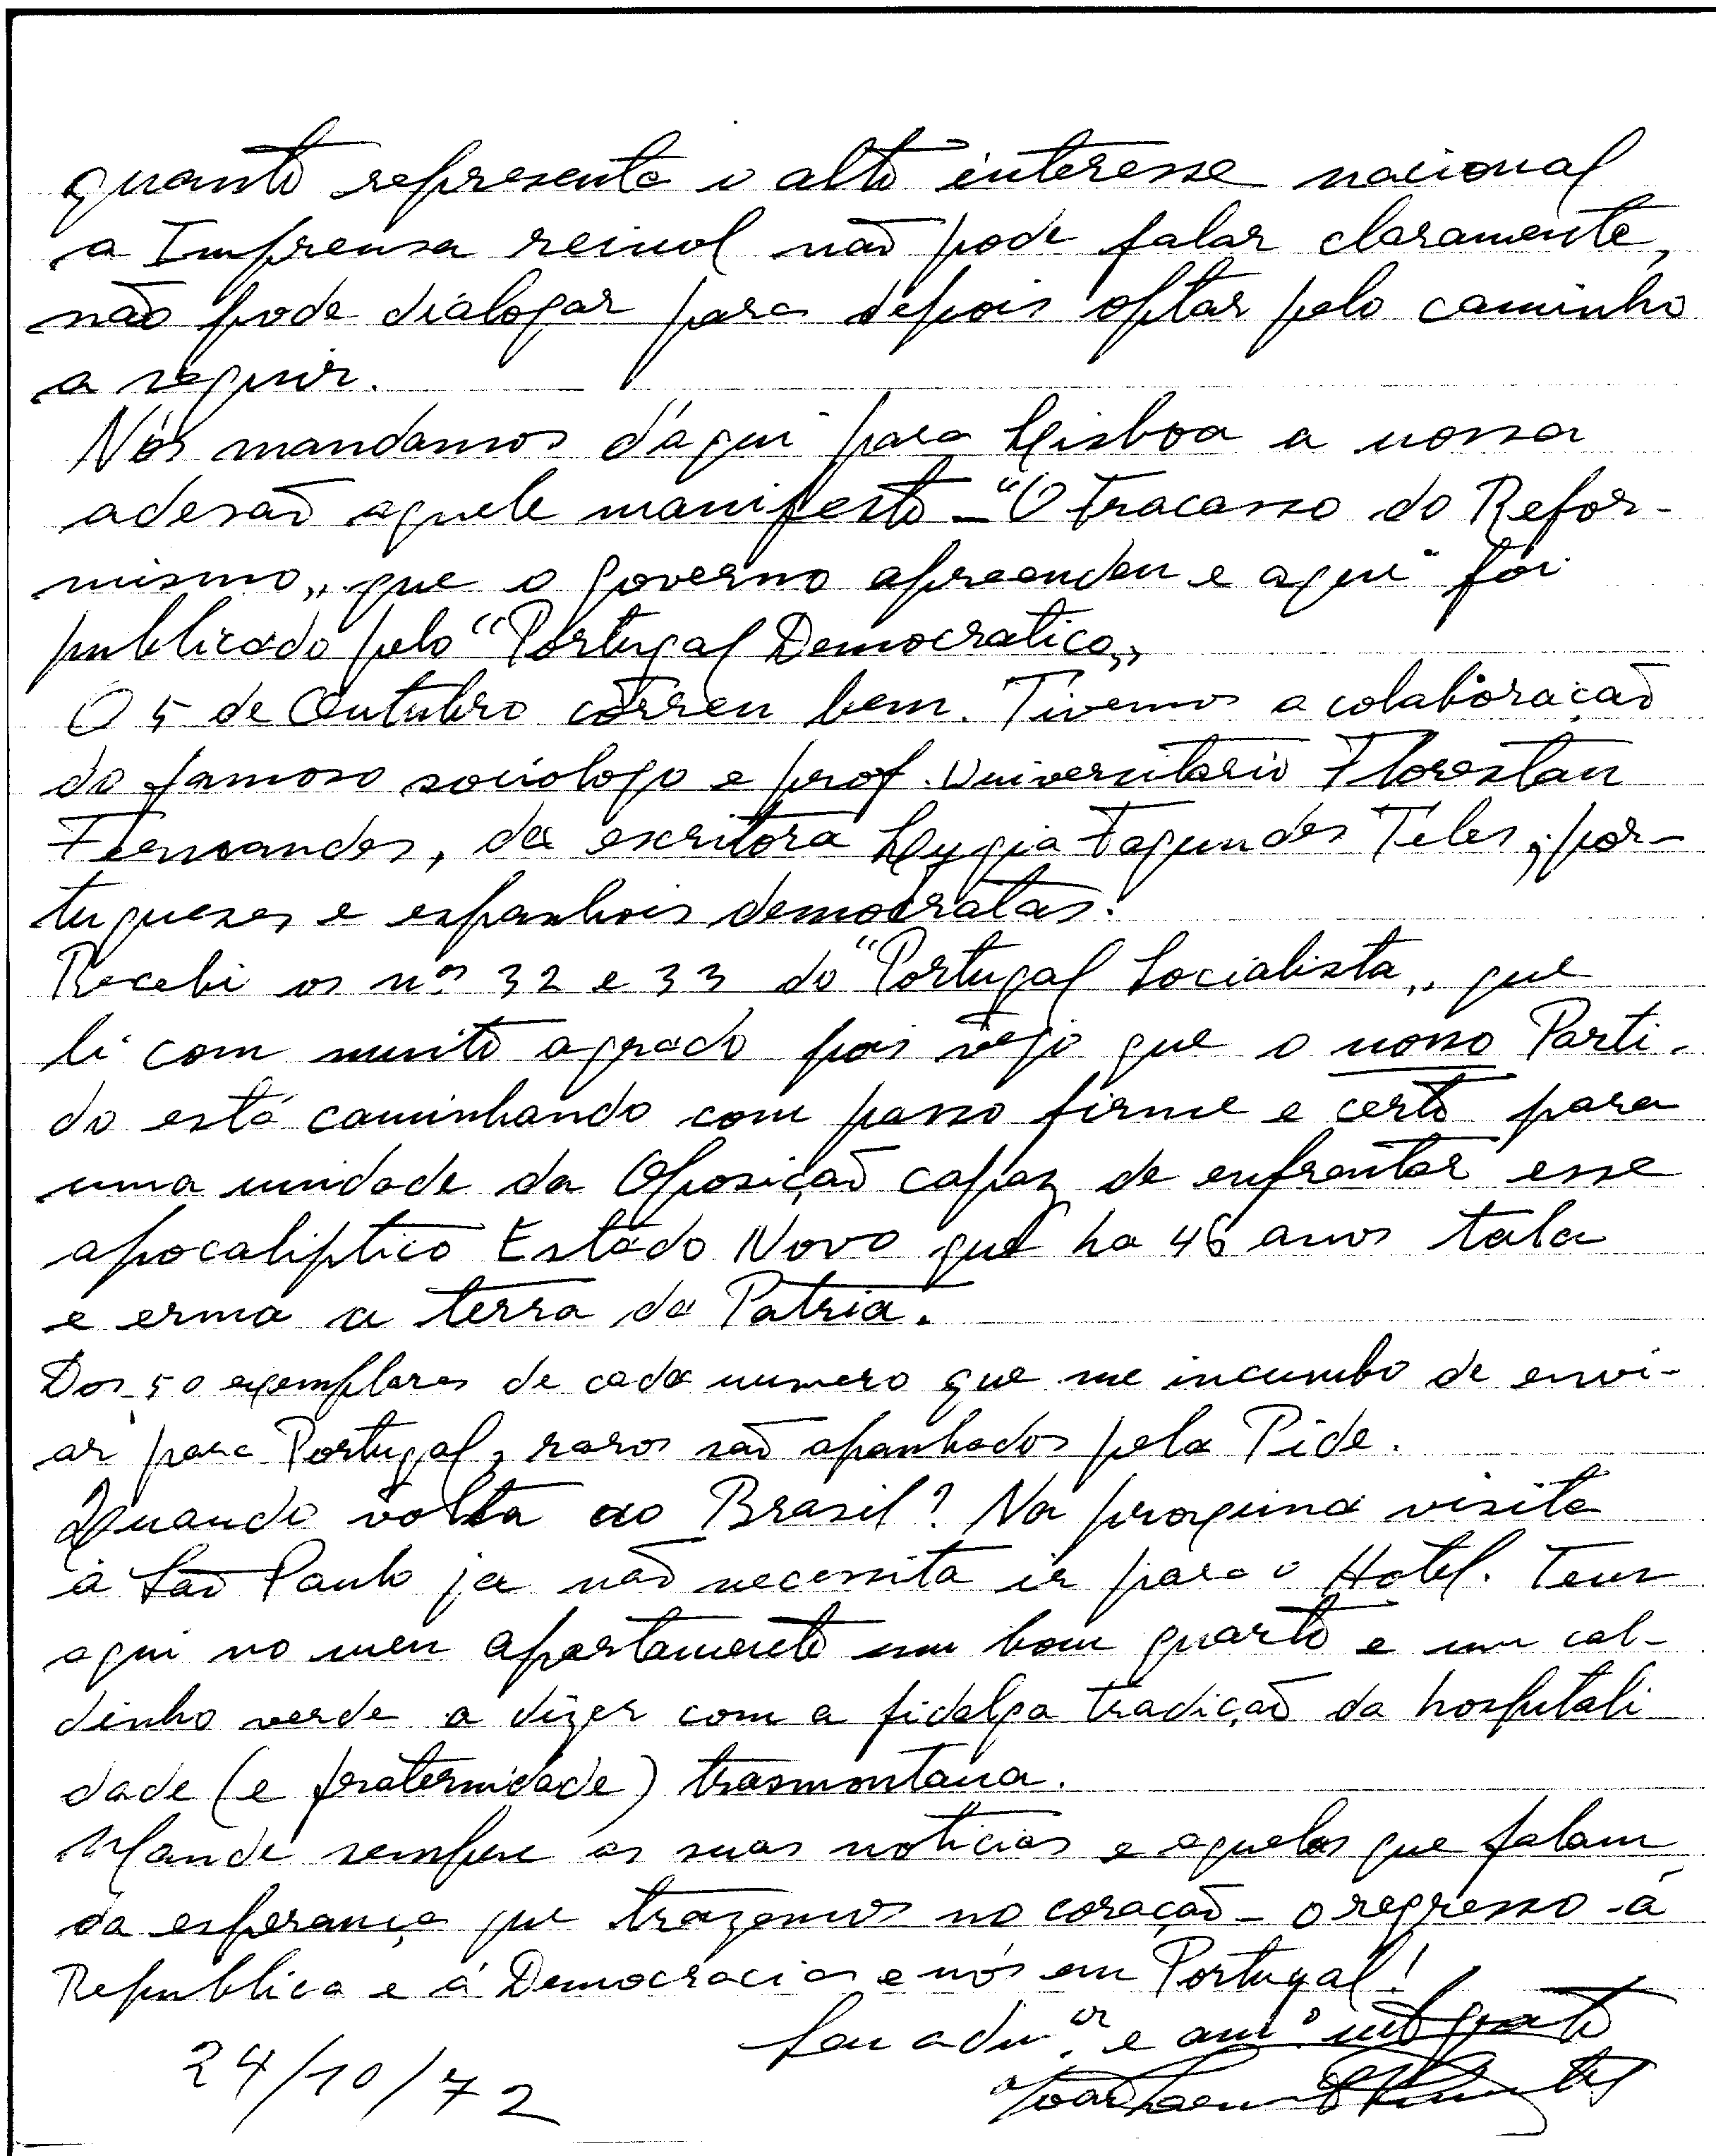 quanto representa o alto interesse nacional
a Imprensa reinol não pode falar claramente,
não pode dialogar para depois optar pelo caminho
a seguir.
Nós mandamos d'aqui para Lisboa a nossa
adesão aquele manifesto - "O Fracasso do Refor-
mismo,, que o governo apreendeu e aqui foi
publicado pelo "Portugal Democratico,,
O 5 de Outubro correu bem. Tivemos a colaboração
do famoso sociologo e prof. Universitario Florestan
Fernandes, da escritora Lygia Fagundes Teles, por-
tugueses e espanhois democratas.
Recebi os nos 32 e 33 do "Portugal Socialista,, que
li com muito agrado pois vejo que o nosso Parti-
do está caminhando com passo firme e certo para
uma unidade da Oposição capaz de enfrentar esse
apocaliptico Estado Novo que ha 46 anos tala
e erma a terra da Patria.
Dos 50 exemplares de cada numero que me incumbo de envi-
ar para Portugal, raros são apanhados pela Pide.
Quando volta ao Brasil? Na proxima visita
a São Paulo ja não necessita ir para o Hotel. Tem
aqui no meu apartamento um bom quarto e um cal-
dinho verde a dizer com a fidalga tradição da hospitali
dade (e fraternidade) trasmontana.
Mande sempre as suas noticias e aquelas que falam
da esperança que trazemos no coração - o regresso á
Republica e á Democracia e nós em Portugal!
Seu admor e amo mto grato
24/10/72